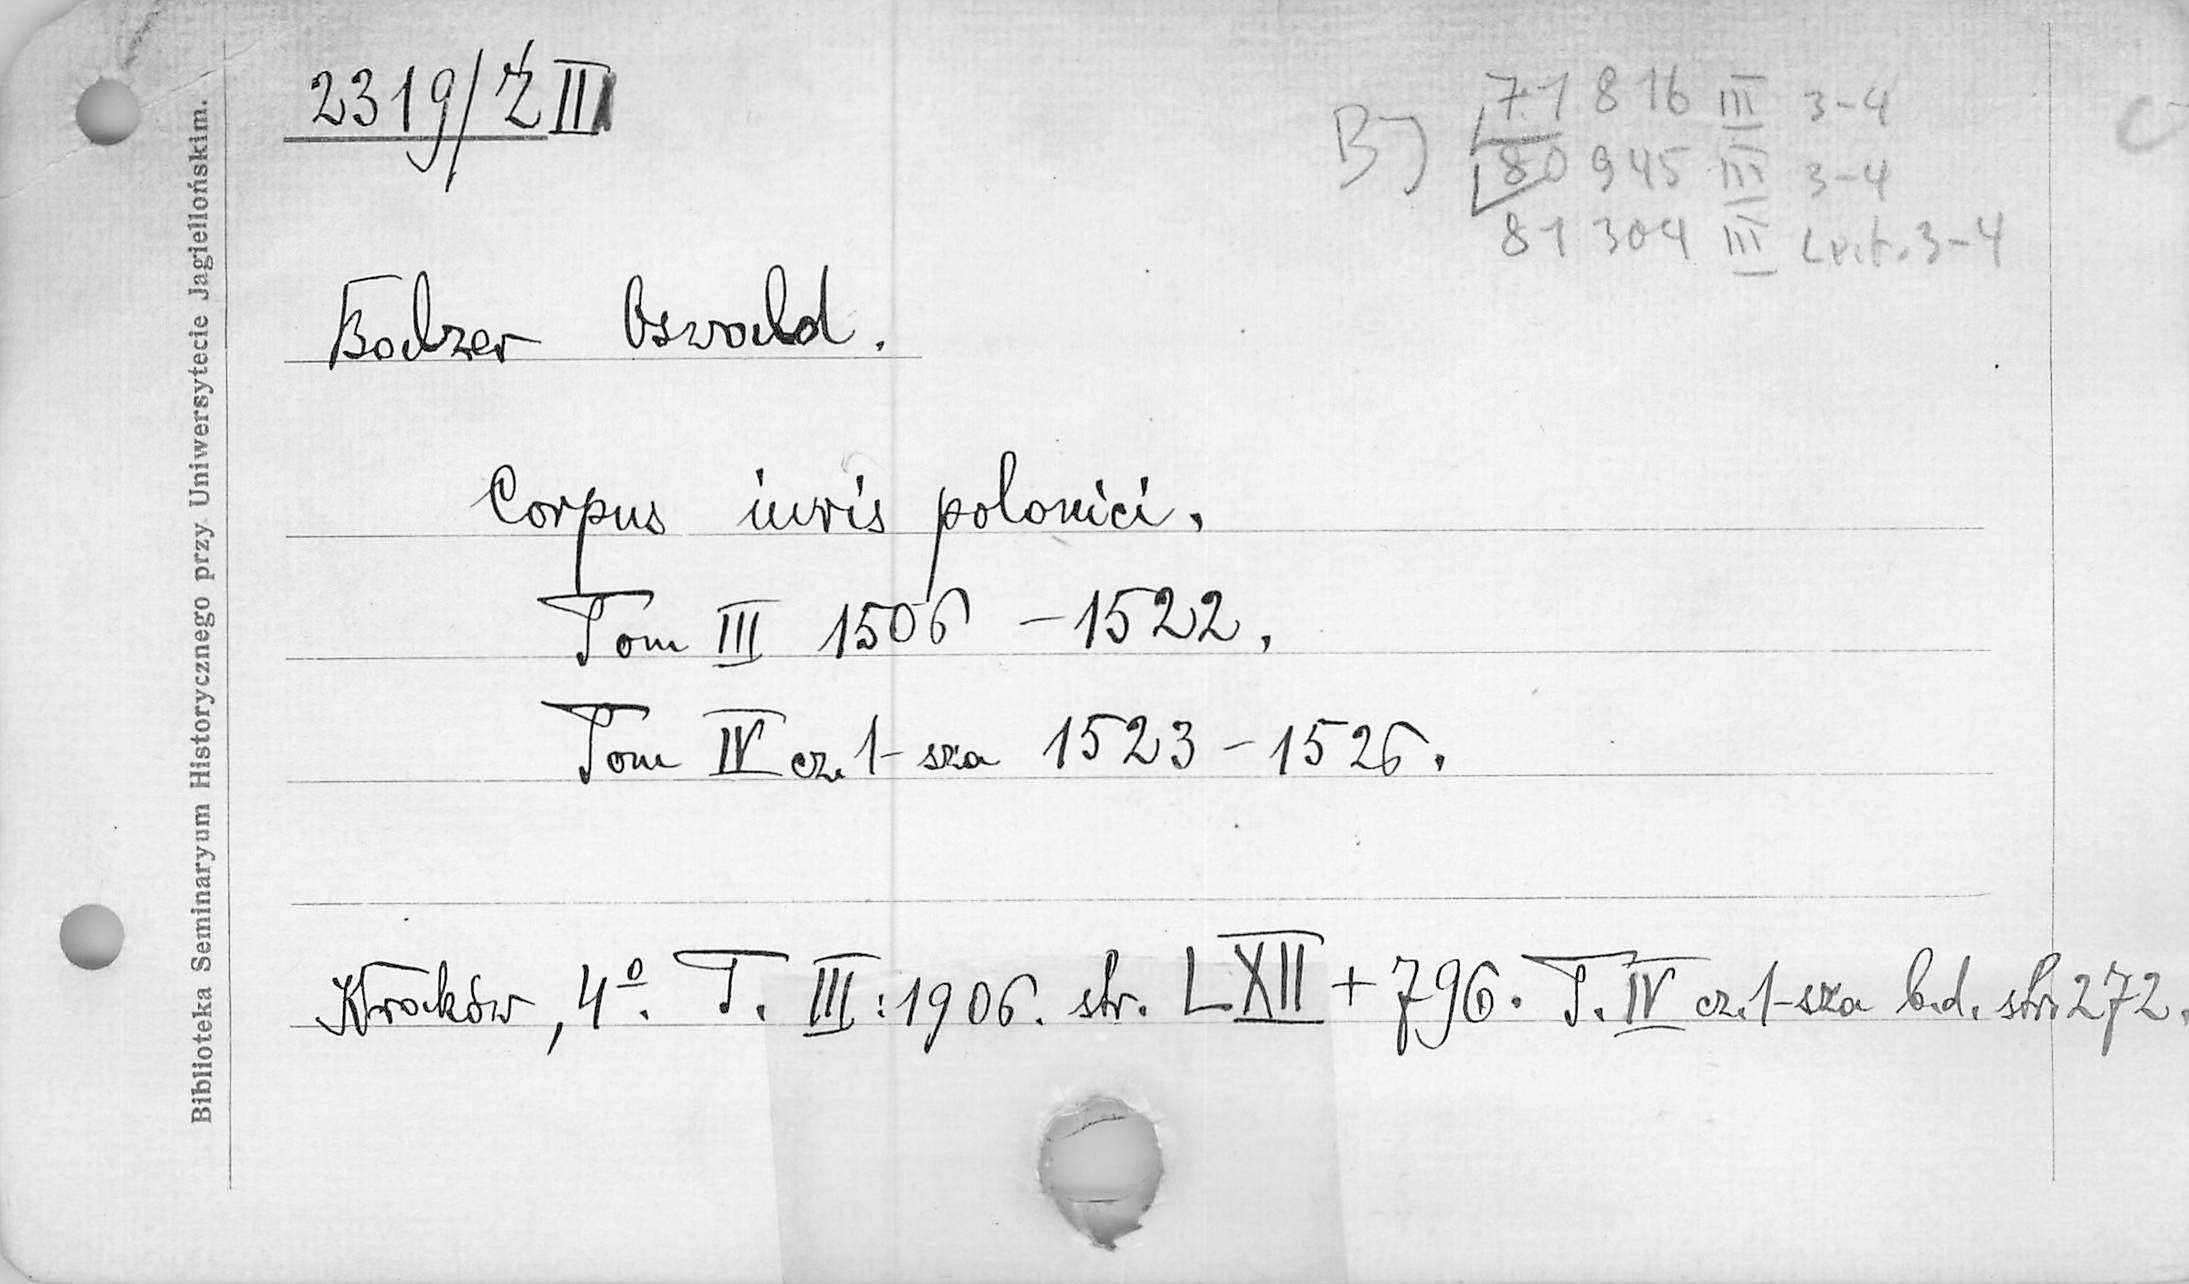 2319/Ż III
B) 71 816 III 3-4
80 945 III 3-4
81 304 III 3-4
Balzer Oswald.
Corpus iuris polonici.
Tom III 1506 – 1522.
Tom IV cz. 1-sza 1523 – 1526.
Kraków, 4º. T. III: 1906. str. LXII + 796. T. IV cz. 1-sza b.d. str. 272.
Biblioteka Seminaryum Historycznego przy Uniwersytecie Jagiellońskim.